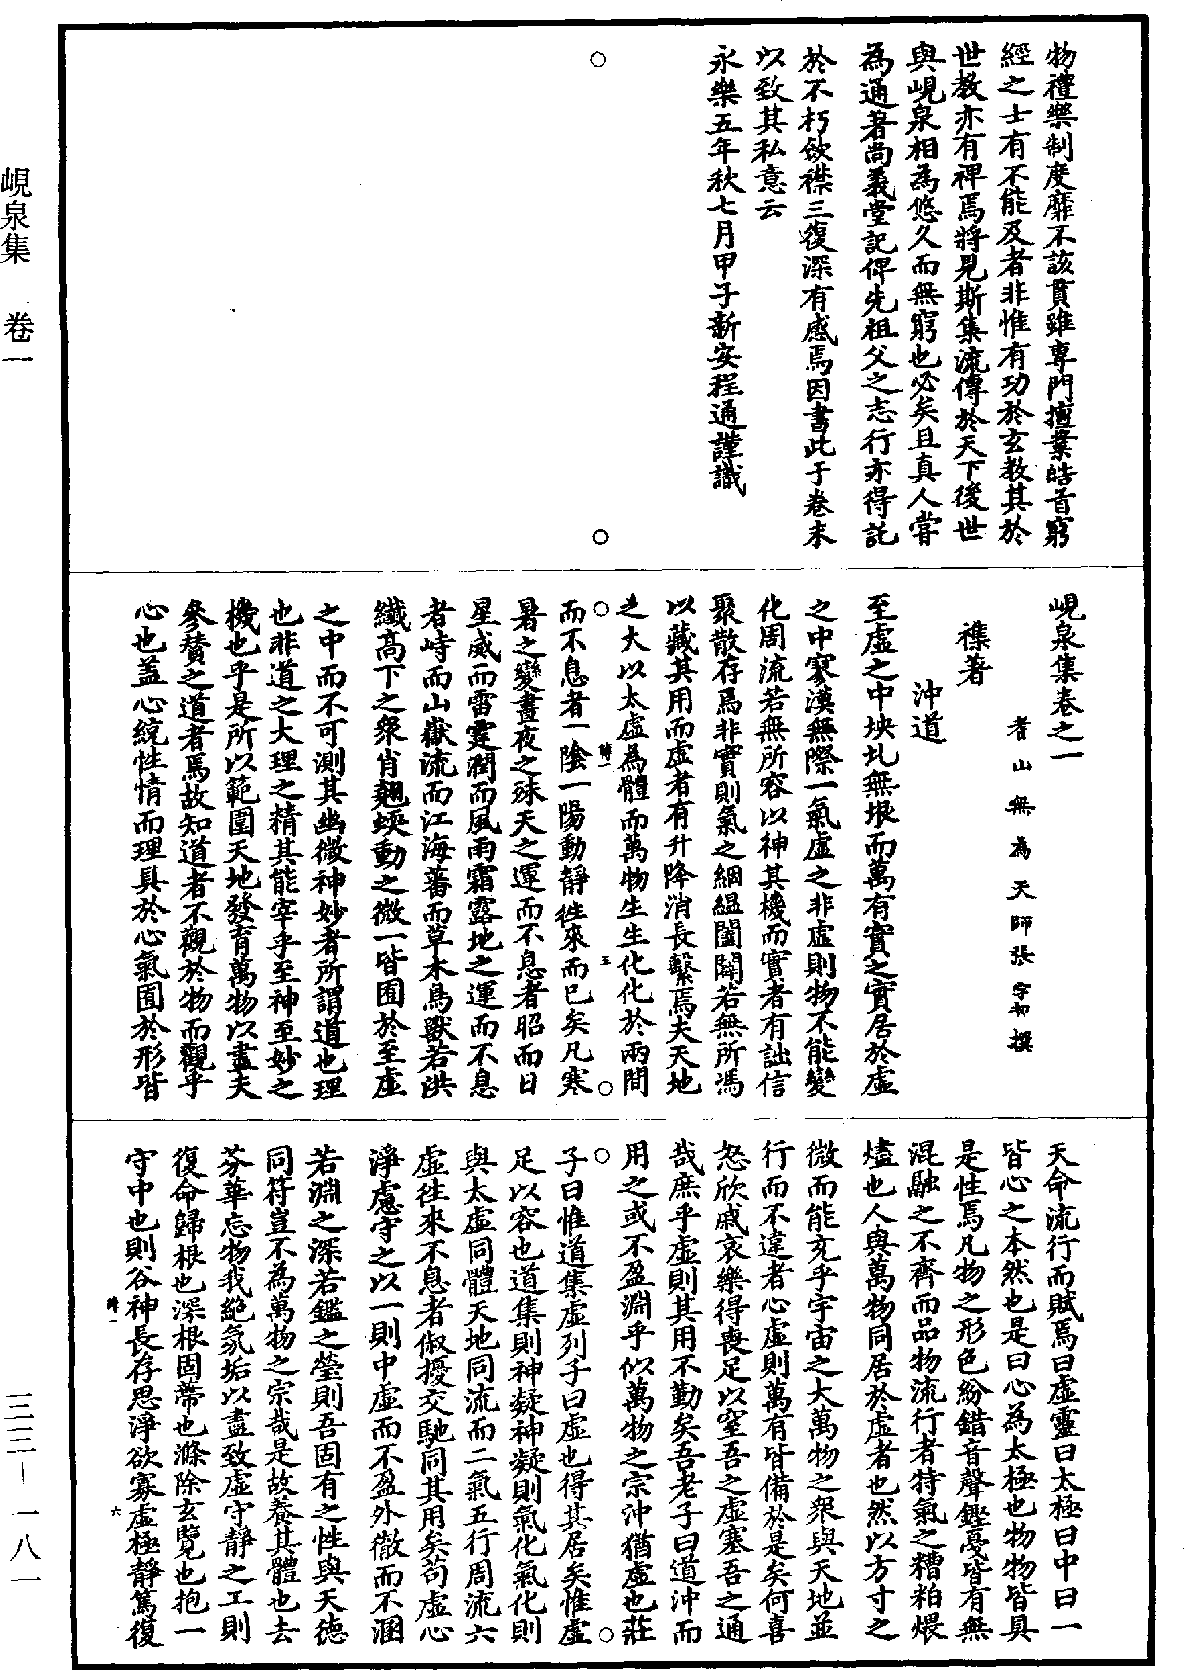 物禮樂制度靡不該貫雖專門擅業皓首窮
經之士有不能及者非惟有功於玄教其於
世教亦有裨焉將見斯集流傳於天下後世
與峴泉相為悠久而無窮也必矣且真人嘗
為通著尚義堂記俾先祖父之志行亦得託
於不朽斂襟三復深有感焉因書此于卷末
以致其私意云
永樂五年秋七月甲子新安程通謹識
峴泉集卷之一
耆山無為天師張宇初撰
襍著
沖道
至虛之中坱圠無垠而萬有實之實居於虛
之中寥漠無際一氣虛之非虛則物不能變
化周流若無所容以神其機而實者有詘信
聚散存焉非實則氣之絪縕闔闢若無所馮
以藏其用而虛者有升降消長繫焉夫天地
之大以太虛為體而萬物生生化化於兩間
而不息者一陰一陽動靜往來而已矣凡寒
暑之變晝夜之殊天之運而不息者昭而日
星威而雷霆潤而風雨霜露地之運而不息
者峙而山嶽流而江海蕃而草木鳥獸若洪
纖高下之衆肖翹蝡動之微一皆囿於至虛
之中而不可測其幽微神妙者所謂道也理
也非道之大理之精其能宰乎至神至妙之
機也乎是所以範圍天地發育萬物以盡夫
參贊之道者焉故知道者不觀於物而觀乎
心也蓋心統性情而理具於心氣囿於形皆
天命流行而賦焉曰虛靈曰太極曰中曰一
皆心之本然也是曰心為太極也物物皆具
是性焉凡物之形色紛錯音聲鏗戛皆有無
混融之不齊而品物流行者特氣之糟粕煨
燼也人與萬物同居於虛者也然以方寸之
微而能充乎宇宙之大萬物之衆與天地並
行而不違者心虛則萬有皆備於是矣何喜
怒欣戚哀樂得喪足以窒吾之虛塞吾之通
哉庶乎虛則其用不勤矣吾老子曰道沖而
用之或不盈淵乎似萬物之宗沖猶虛也莊
子曰惟道集虛列子曰虛也得其居矣惟虛
足以容也道集則神凝神凝則氣化氣化則
與太虛同體天地同流而二氣五行周流六
虛往來不息者俶擾交馳同其用矣苟虛心
淨慮守之以一則中虛而不盈外徹而不溷
若淵之深若鑑之瑩則吾固有之性與天德
同符豈不為萬物之宗哉是故養其體也去
芬華忘物我絕氛垢以盡致虛守靜之工則
復命歸根也深根固蒂也滌除玄覽也抱一
守中也則谷神長存思淨欲寡虛極靜篤復
峴泉集　卷一
三三—一八一